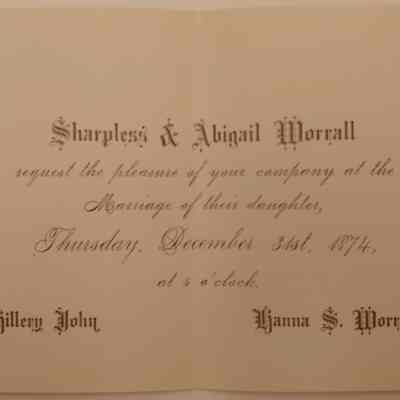 Sharpless & Abigail Worrall
request the pleasure of your company at the
Marriage of their daughter,
Thursday, December 31st, 1874,
at 5 o'clock.
illery John Hanna S. Worr